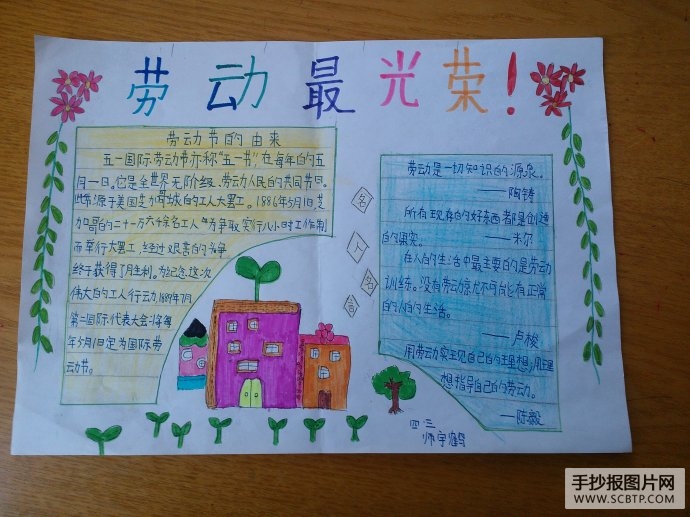 劳动最光荣!
劳动节的由来
五一国际劳动节亦称“五一节”,在每年的五
月一日。它是全世界无阶级、劳动人民的共同节日。
此节源于美国芝加哥城的工人大罢工。1886年5月1日芝
加哥的二十一万六千余名工人为争取实行八小时工作制
而举行大罢工,经过艰苦的斗争
终于获得了胜利。为纪念这次
伟大的工人行动,1889年7月
第二国际代表大会将每
年5月1日定为国际劳
动节。
名
人
名
言
劳动是一切知识的源泉。
——陶铸
所有现存的好东西都是创造
的果实。——米尔
在人的生活中最主要的是劳动
训练。没有劳动就不可能有正常
的人的生活。
——卢梭
用劳动实现自己的理想,用理
想指导自己的劳动。
——陈毅
四.三
师宇
手抄报图片网
WWW.SCBTP.COM